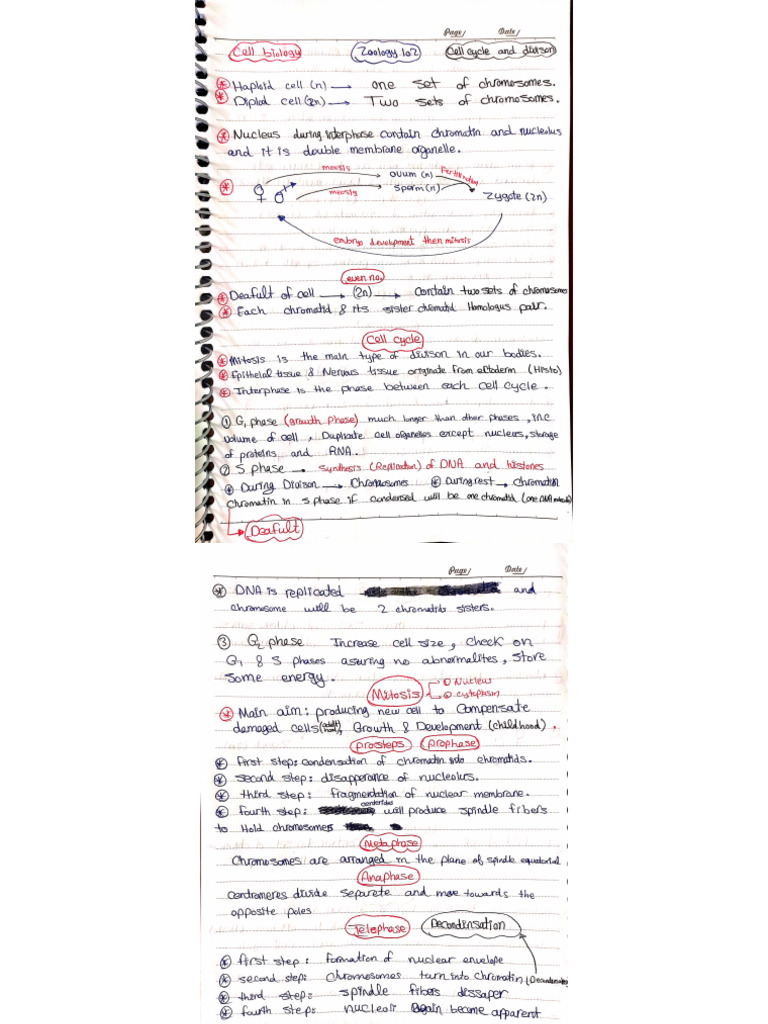 Page/ Date/
Cell biology Zoology 102 Cell cycle and divison
Haploid cell (n) → one set of chromosomes.
Diploid cell (2n) → Two sets of chromosomes.
Nucleus during interphase contain chromatin and nucleolus
and it is double membrane organelle.
meiosis ovum (n) Fertilization
♀ ♂ meiosis sperm (n) Zygote (2n)
embryo development then mitosis
even no.
Deafult of cell → (2n) → Contain two sets of chromosomes
Each chromatid & its sister chromatid Homologus pair.
Cell cycle
Mitosis is the main type of divison in our bodies.
Epithelial tissue & Nervous tissue originate from ectoderm (Histo)
Interphase is the phase between each cell cycle.
① G₁ phase (growth phase) much longer than other phases, inc
volume of cell, Duplicate cell organelles except nucleus, storage
of proteins and RNA.
② S phase → Synthesis (Replication) of DNA and histones
During Divison → Chromosomes During rest → chromatin
Chromatin in S phase if condensed will be one chromatid (one DNA molecule)
Deafult
Page/ Date/
DNA is replicated and
chromosome will be 2 chromatids sisters.
③ G₂ phase Increase cell size, check on
G₁ & S phases asuring no abnormalites, store
some energy.
Mitosis ① Nucleus
② cytoplasm
Main aim: producing new cell to compensate
damaged cells (adult hood), Growth & Development (childhood).
prosteps prophase
first step: condensation of chromatin into chromatids.
second step: disapperance of nucleolus.
third step: fragmentation of nuclear membrane.
fourth step: centerioles will produce spindle fibers
to Hold chromosomes
Metaphase
Chromosomes are arranged in the plane of spindle equatorial
Anaphase
Centromeres divide separate and move towards the
opposite poles
Telephase Decondinsation
first step: formation of nuclear envelope
second step: chromosomes turn into chromatin (Decondensate)
third step: spindle fibers dissaper
fourth steps: nucleoli again become apparent